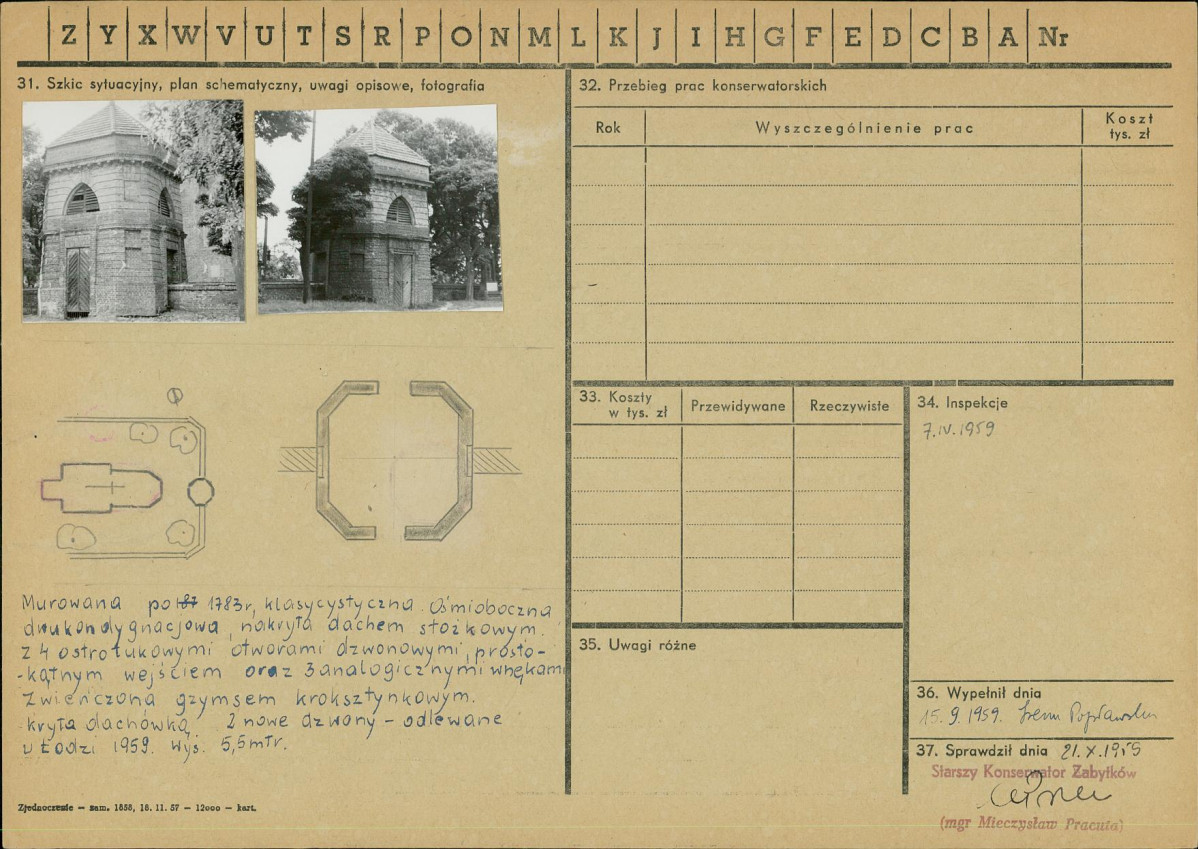 Z Y X W V U T S R P O N M L K J I H G F E D C B A Nr
31. Szkic sytuacyjny, plan schematyczny, uwagi opisowe, fotografia
Murowana po 1783r, klasycystyczna. Ośmioboczna
dwukondygnacjowa, nakryta dachem stożkowym.
z 4 ostrołukowymi otworami dzwonowymi, prosto-
-kątnym wejściem oraz 3 analogicznymi wnękami
Zwieńczona gzymsem kroksztynkowym.
kryta dachówką. 2 nowe dzwony - odlewane
w Łodzi 1959. Wys. 5,5 mtr.
Zjednoczenie — zam. 1858, 18. 11. 57 — 12000 — kart.
32. Przebieg prac konserwatorskich
Rok Wyszczególnienie prac Koszt tys. zł
33. Koszty w tys. zł Przewidywane Rzeczywiste
34. Inspekcje
7.IV.1959
35. Uwagi różne
36. Wypełnił dnia
15.9.1959. Irena Popławska
37. Sprawdził dnia 21.X.1959
Starszy Konserwator Zabytków
(mgr Mieczysław Pracuta)